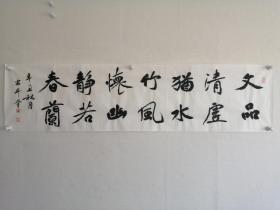 文品
清虛
猶水
竹風
懷幽
静若
春蘭
辛丑秋月